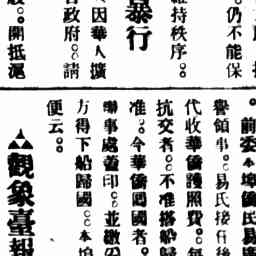 。仍不能保
維持秩序。。
暴行
、因華人擴
省政府。。請
設。。開抵滬
。前委本埠僑民易
譽領事。易氏接任後
代收華僑護照費。。每
抗交者。。不准搭船歸
准。。令華僑回國者。
聯事處蓋印。。並繳
方得下船歸國。。本埠
便云。。
▲▲觀象臺報